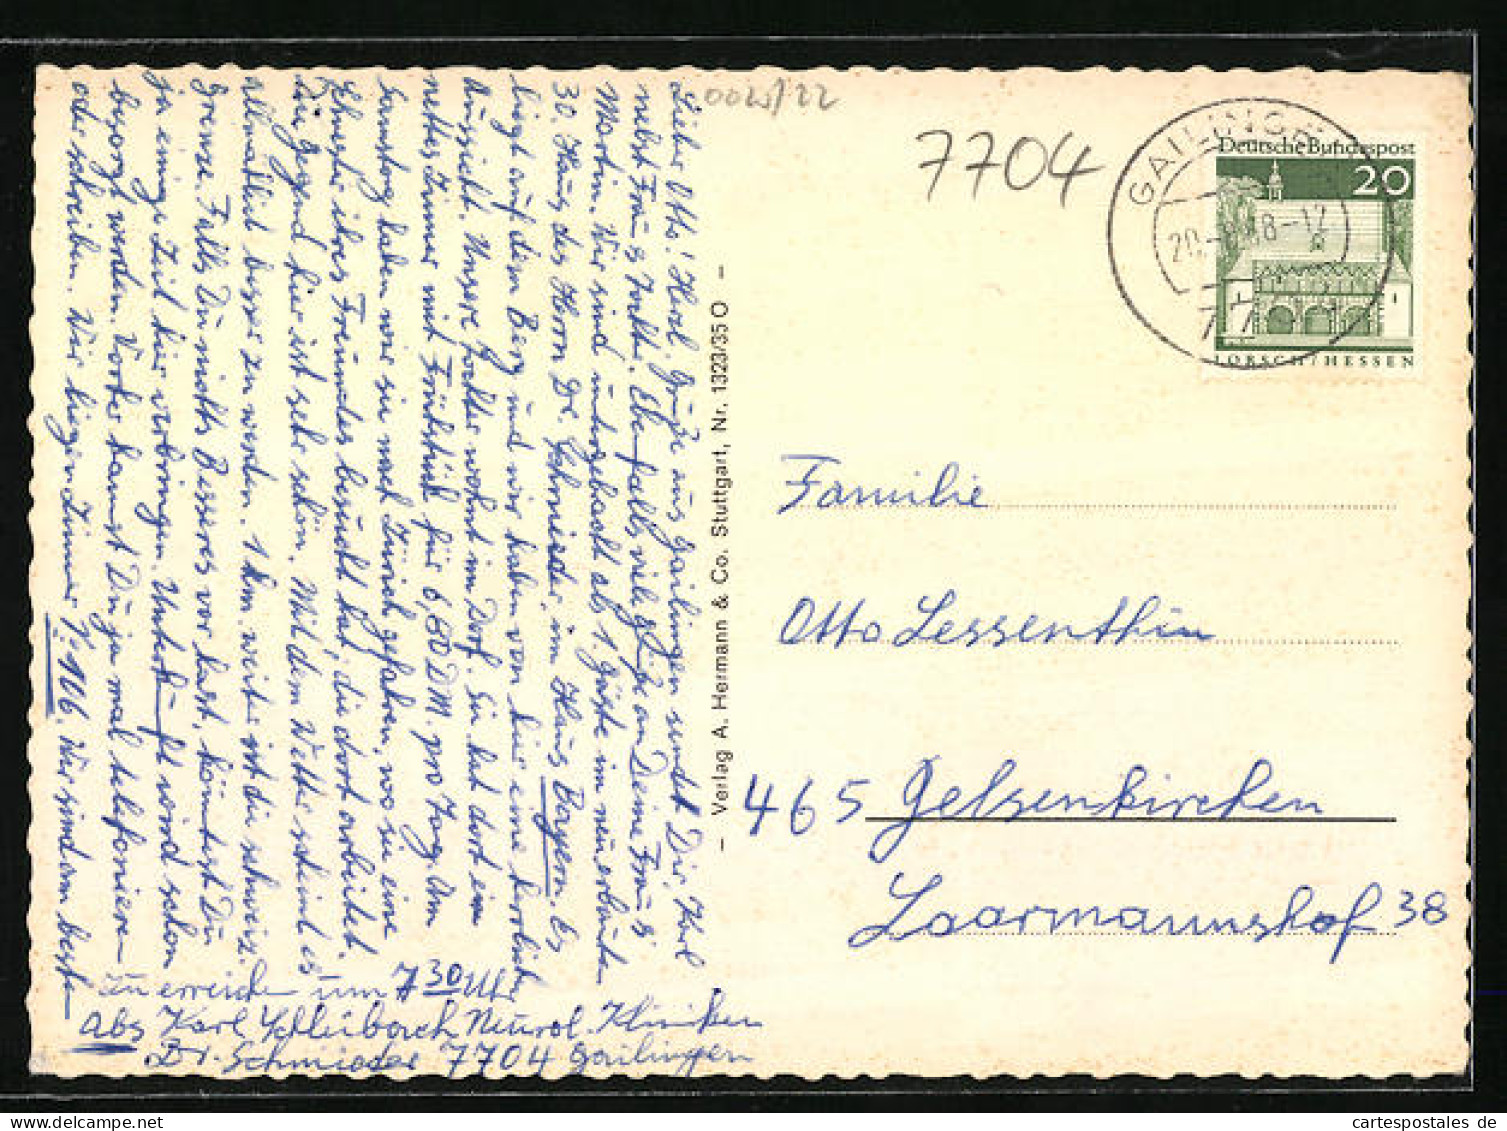 Lieber Otto! Herzl. Grüße aus Gailingen sendet Dir, Karl
nebst Frau u. Jutta. Ebenfalls viele Grüße an Deine Frau u.
Martin. Wir sind untergebracht als 1. Gäste im neuerbauten
30. Haus des Herrn Dr. Schmieder, im Haus Bayern. Es
liegt auf dem Berg und wir haben von hier eine herrliche
Aussicht. Unsere Tochter wohnt im Dorf. Sie hat dort ein
nettes Zimmer mit Frühstück für 6,50 DM. pro Tag. Am
Samstag haben wir sie nach Zürich gefahren, wo sie eine
ihres Freundes besucht hat, die dort arbeitet.
Die Gegend hier ist sehr schön. Mit dem Wetter scheint es
allmählich besser zu werden. 1 km weiter ist die schweiz.
Grenze. Falls Du nichts Besseres vor hast, könntest Du
ja einige Zeit hier verbringen. Unterkunft wird schon
besorgt werden. Vorher kannst Du ja mal telefonieren
oder schreiben. Wir liegen Zimmer 106. Wir sind am besten
zu erreichen um 7 30 Uhr
Abs Karl Neurol. Kliniken
Dr. Schmieder 7704 Gailingen
– Verlag A. Hermann & Co. Stuttgart, Nr. 1323/35 O –
0025/22
7704
GAILINGEN
20.-8.68-12
77
Deutsche Bundespost
20
LORSCH/HESSEN
Familie
Otto Lessenthin
465 Gelsenkirchen
Laarmannshof 38
cartespostales.de